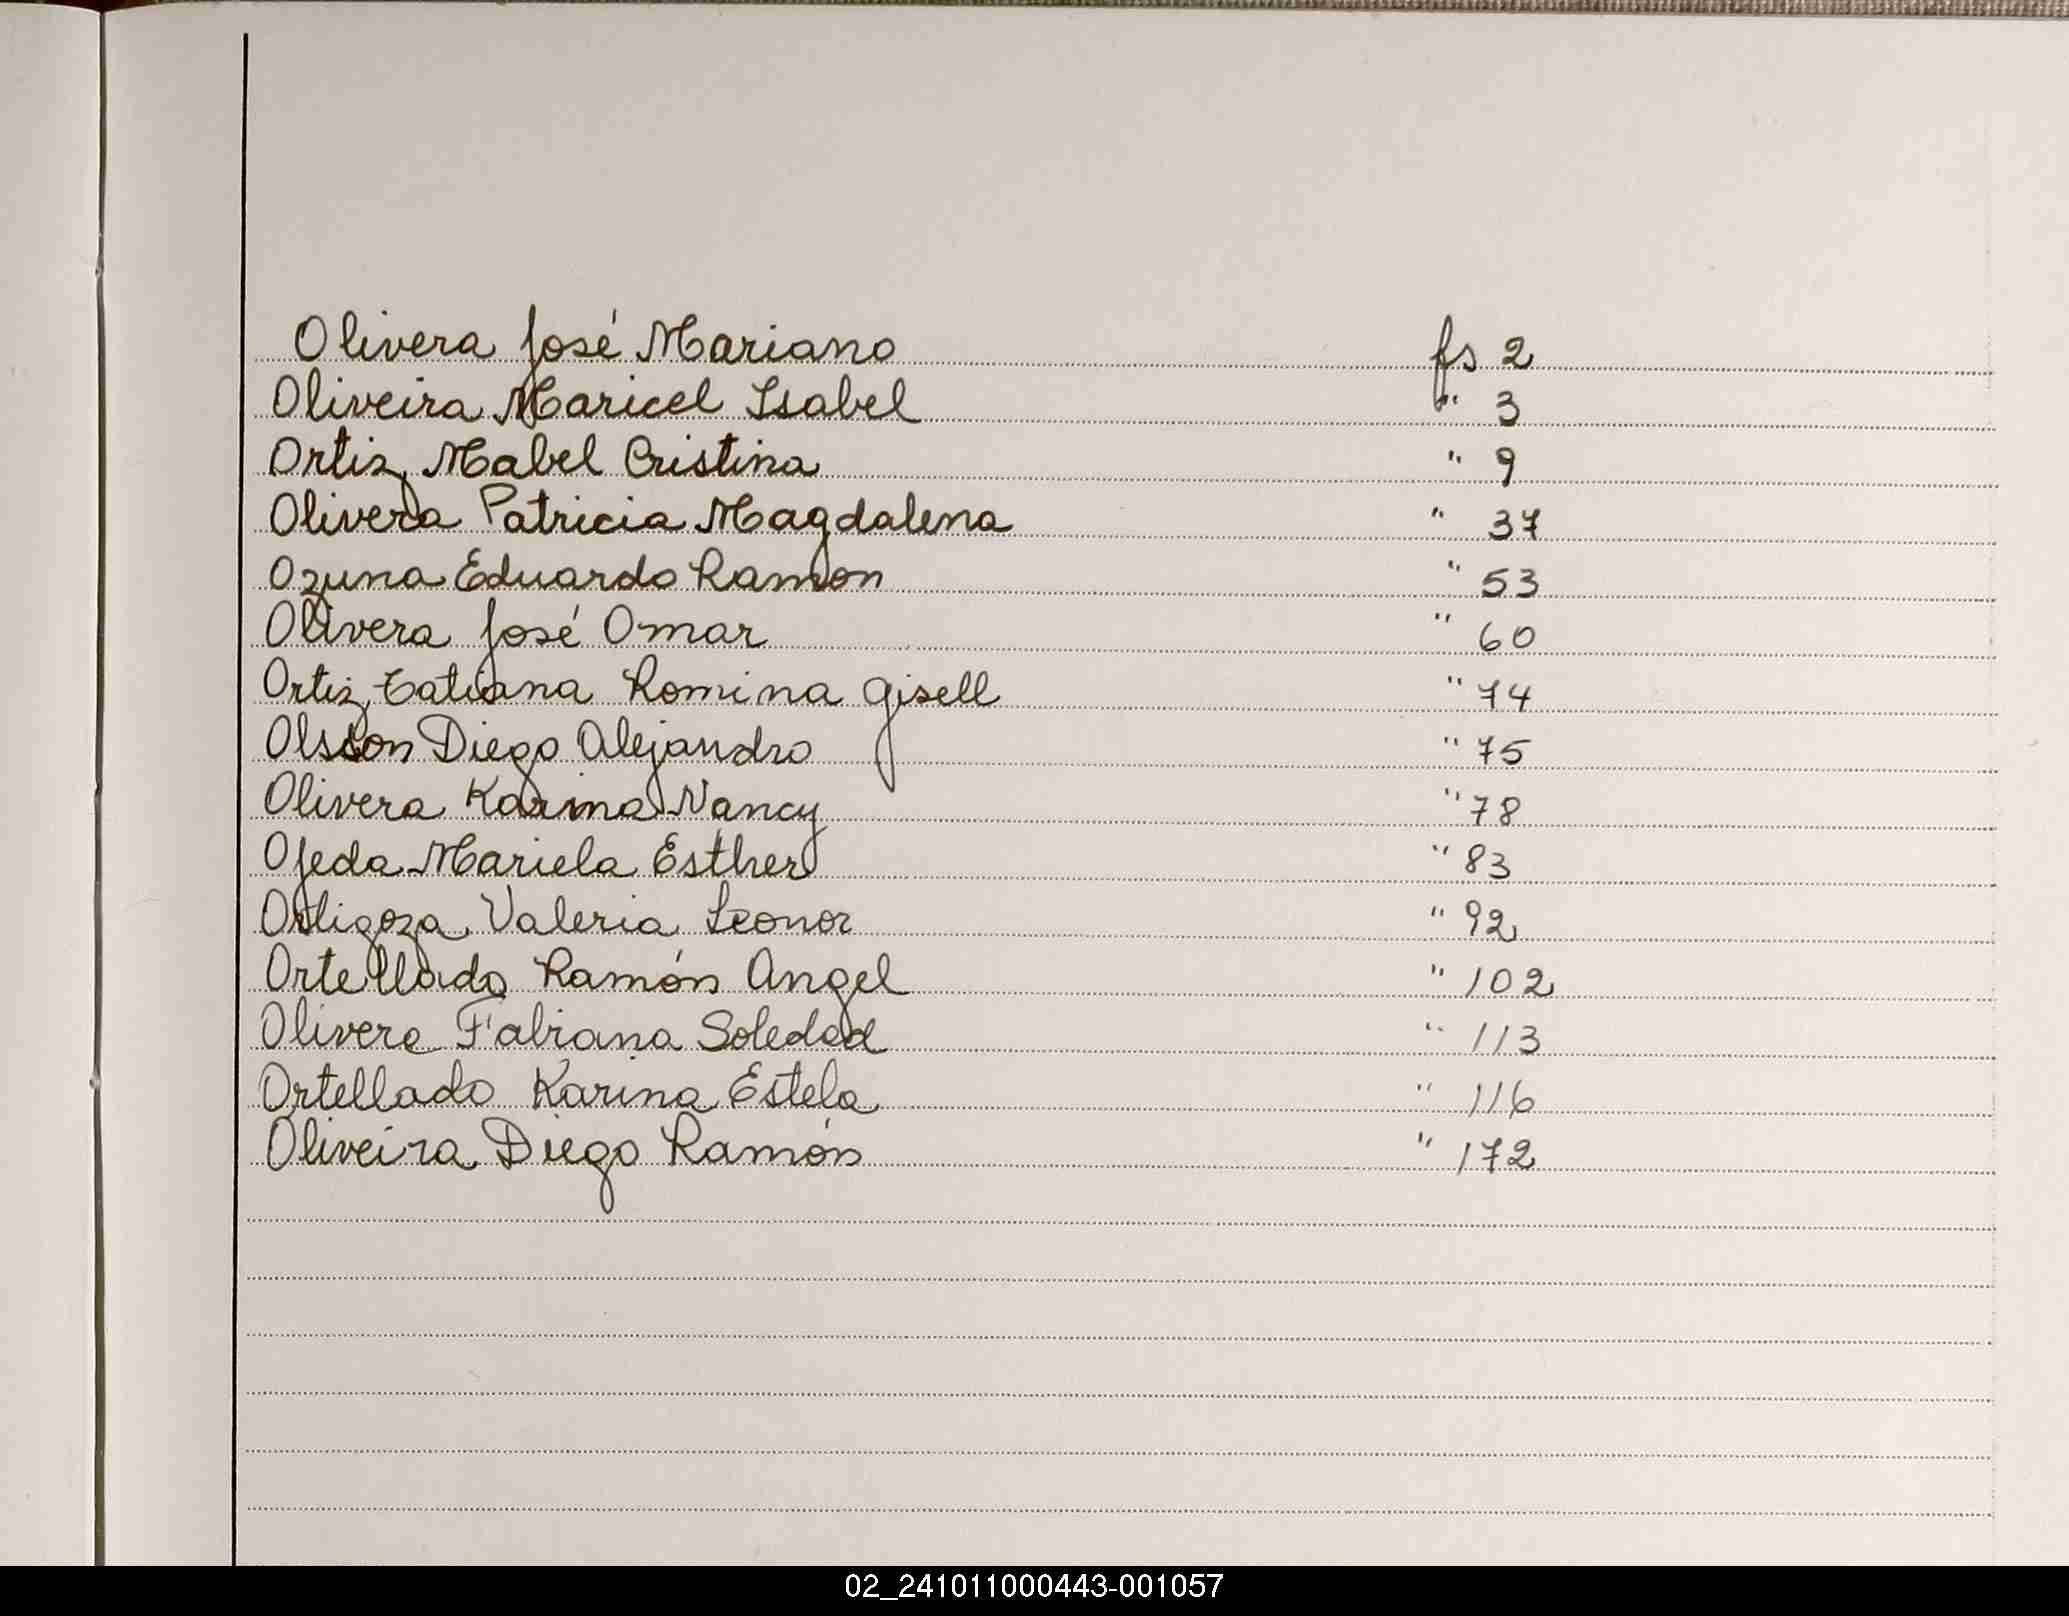 Olivera José Mariano fs 2
Oliveira Maricel Isabel " 3
Ortiz Mabel Cristina " 9
Olivera Patricia Magdalena " 37
Ozuna Eduardo Ramon " 53
Olivera José Omar " 60
Ortiz Tatiana Romina Gisell " 74
Olsson Diego Alejandro " 75
Olivera Karina Nancy " 78
Ojeda Mariela Esther " 83
Ortigoza Valeria Leonor " 92
Ortellado Ramón Angel " 102
Olivera Fabiana Soledad " 113
Ortellado Karina Estela " 116
Oliveira Diego Ramón " 172
02_241011000443-001057